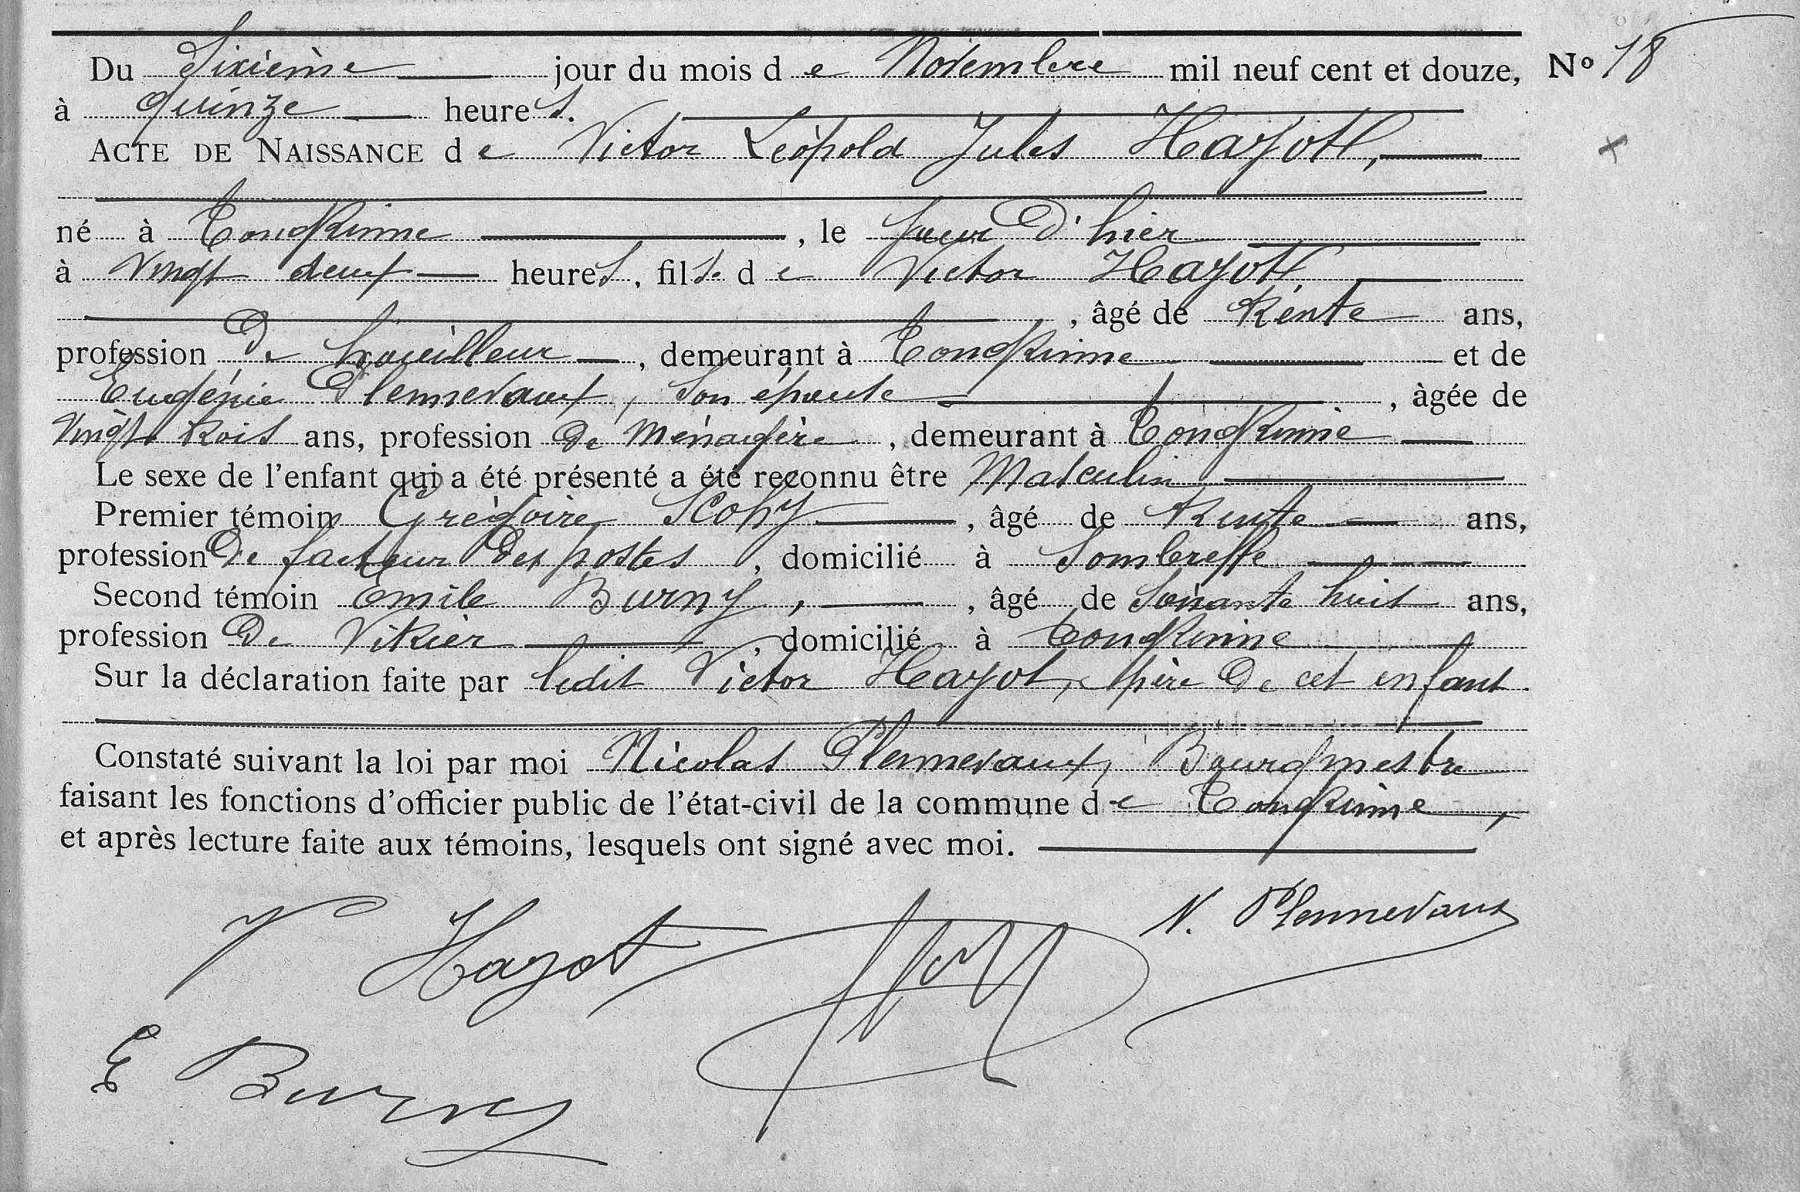 Du Sixième jour du mois de Novembre mil neuf cent et douze, No 18
à quinze heures.
ACTE DE NAISSANCE de Victor Léopold Jules Hayot,
né à Tongrinne, le jour d'hier
à vingt deux heures, fils de Victor Hayot
, âgé de trente ans,
profession de houilleur, demeurant à Tongrinne et de
Eugénie Plennevaux, son épouse, âgée de
vingt trois ans, profession de ménagère, demeurant à Tongrinne
Le sexe de l'enfant qui a été présenté a été reconnu être Masculin
Premier témoin Grégoire Scohy, âgé de trente ans,
profession de facteur des postes, domicilié à Sombreffe
Second témoin Emile Burny, , âgé de soixante huit ans,
profession de Vitrier, domicilié à Tongrinne
Sur la déclaration faite par ledit Victor Hayot, père de cet enfant
Constaté suivant la loi par moi Nicolas Plennevaux, Bourgmestre
faisant les fonctions d'officier public de l'état-civil de la commune de Tongrinne,
et après lecture faite aux témoins, lesquels ont signé avec moi.
N. Plennevaux
V Hayot
E Burny